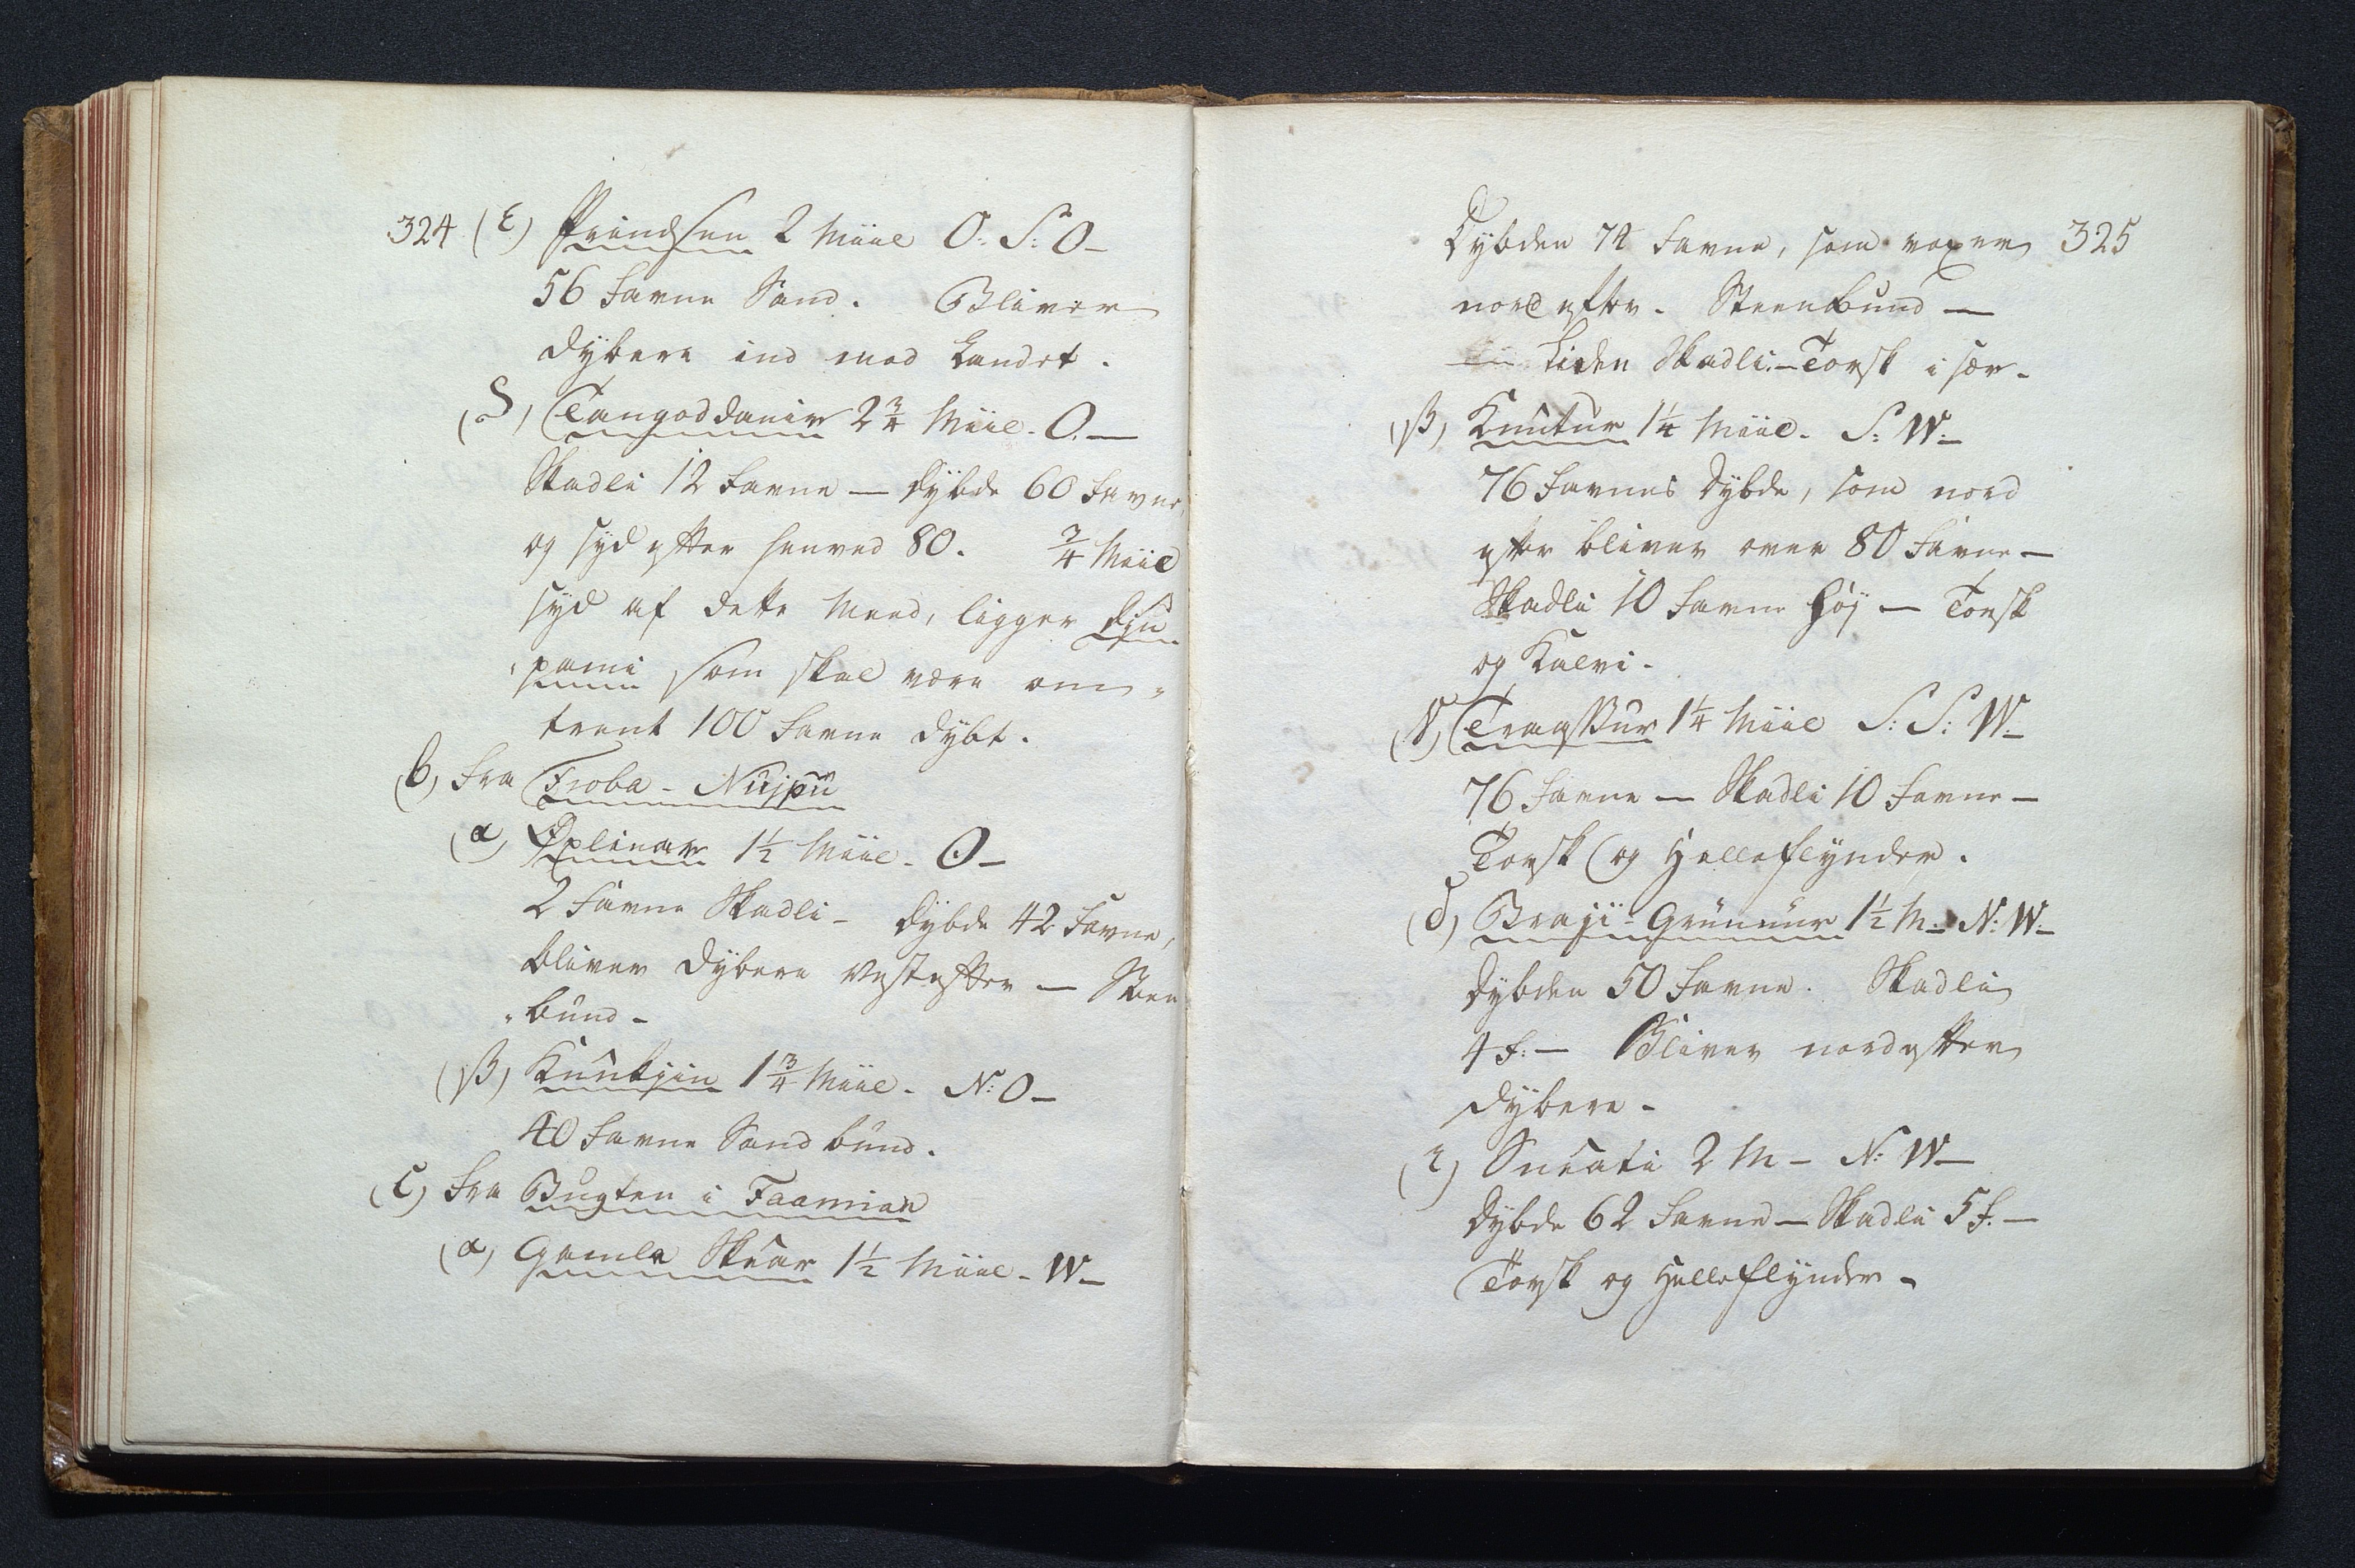 324 (ε) Prindsen 2 Miil O: S: O–
56 Favne Sand. Bliver
dybere ind mod Landet.
(ς) Tangoddanir 2 3/4 Miil. O.—
Skadli 12 Favne — Dybde 60 Favne,
og syd efter henved 80. 3/4 Miil
syd af dette Meed, ligger Dju
pami som skal være om„
trent 100 Favne dybt.
(b) Fra Froba - Nujpu
(α) Øxlinar 1 1/2 Miil. O–
2 Favne Skadli – Dybde 42 Favne,
bliver dybere Vestefter — Steen
„bund –
(β) Knukjin 1 3/4 Miil. N: O–
40 Favne Sandbund.
(c) Fra Bugten i Faamian
(α) Gamla Skéar 1 1/2 Miil. W–
Dybden 74 Favne, som voxer 325
nordefter. Steenbund —
liden Skadli. – Torsk i sær.
(β) Knutur 1 1/4 Miil. S: W.–
76 Favnes Dybde, som nord
efter bliver over 80 Favne –
Skadli 10 Favne høj — Torsk
og Kalvi.
(γ) Tragskur 1 1/4 Miil S: S: W.–
76 Favne — Skadli 10 Favne –
Torsk og Helleflynder.
(δ) Braji-Grunnur 1 1/2 M. – N: W.–
Dybden 50 Favne. Skadli
4 F: – Bliver nordefter
dybere –
(ε) Snéati 2 M – N: W–
Dybde 62 Favne — Skadli 5 F. —
Torsk og Helleflynder –